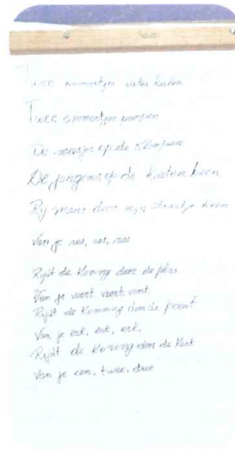 Twee emmertjes water halen
Twee emmertjes pompen
De meisjes op de klompen
De jongens op de houten been
Rij maar door mijn straatje heen
Van je ras, ras, ras
Rijdt de Koning door de plas
Van je voort, voort, voort
Rijdt de Koning door de poort
Van je erk, erk, erk,
Rijdt de Koning door de Kerk
Van je een, twee, drie